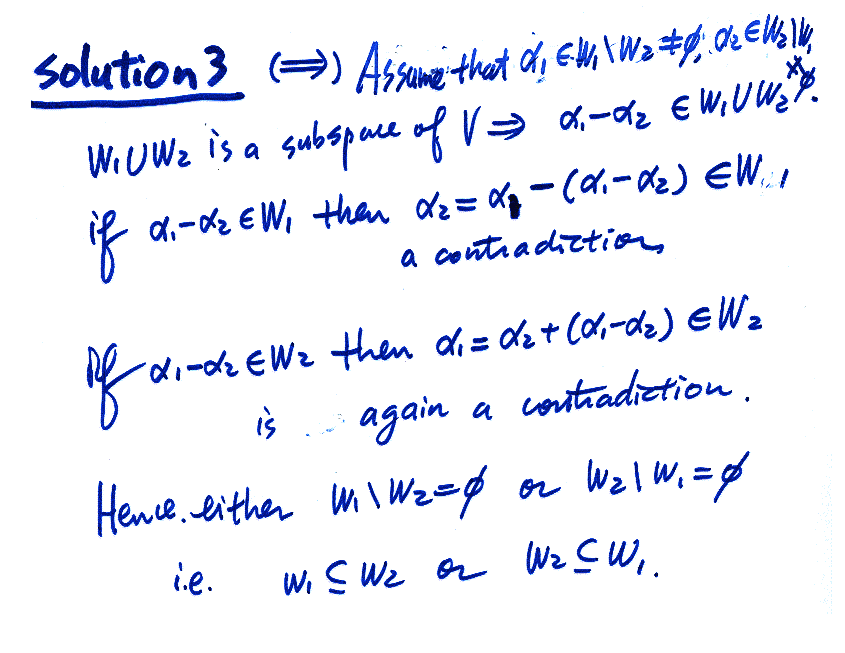 Solution 3 (⟹) Assume that α₁ ∈ W₁ \ W₂ ≠ ∅, α₂ ∈ W₂ \ W₁ ≠ ∅.
W₁ ∪ W₂ is a subspace of V ⟹ α₁ - α₂ ∈ W₁ ∪ W₂
if α₁ - α₂ ∈ W₁ then α₂ = α₁ - (α₁ - α₂) ∈ W₁,
a contradiction,
If α₁ - α₂ ∈ W₂ then α₁ = α₂ + (α₁ - α₂) ∈ W₂
is again a contradiction.
Hence. either W₁ \ W₂ = ∅ or W₂ \ W₁ = ∅
i.e. W₁ ⊆ W₂ or W₂ ⊆ W₁.